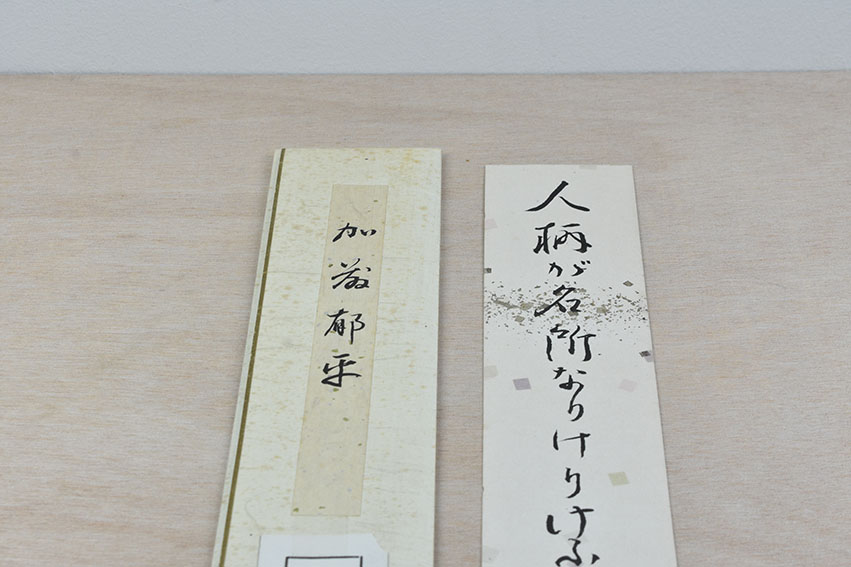 人柄が名所なりけりけふ
加藤郁乎